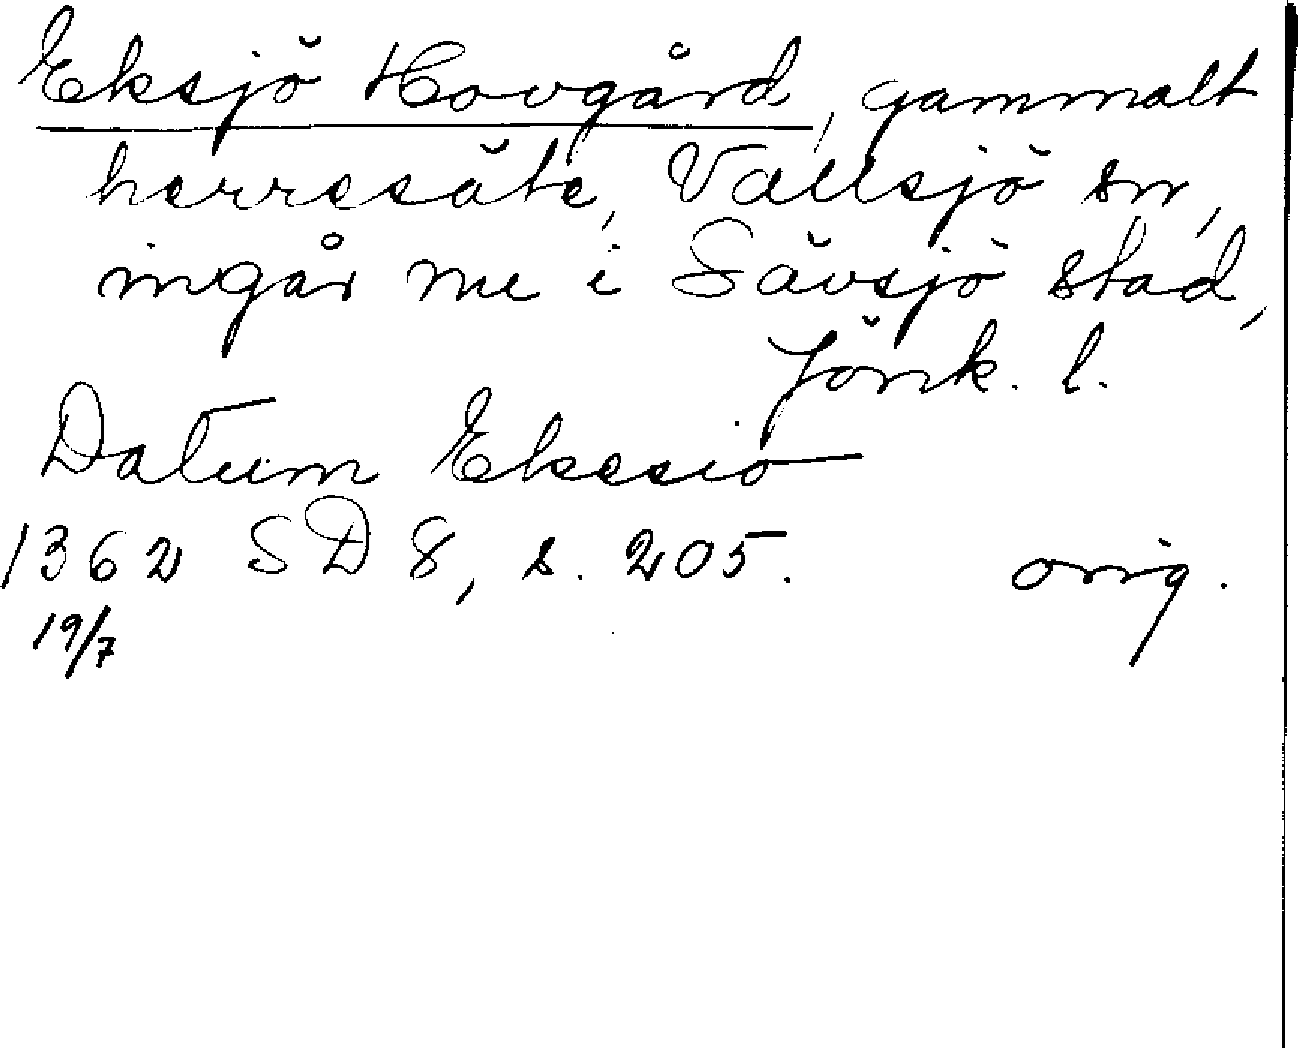 Eksjö Hovgård, gammalt
herresäte, Vallsjö sn,
ingår nu i Sävsjö stad,
Jönk. l.
Datum Ekesio
1362 SD 8, s. 205. orig.
19/7